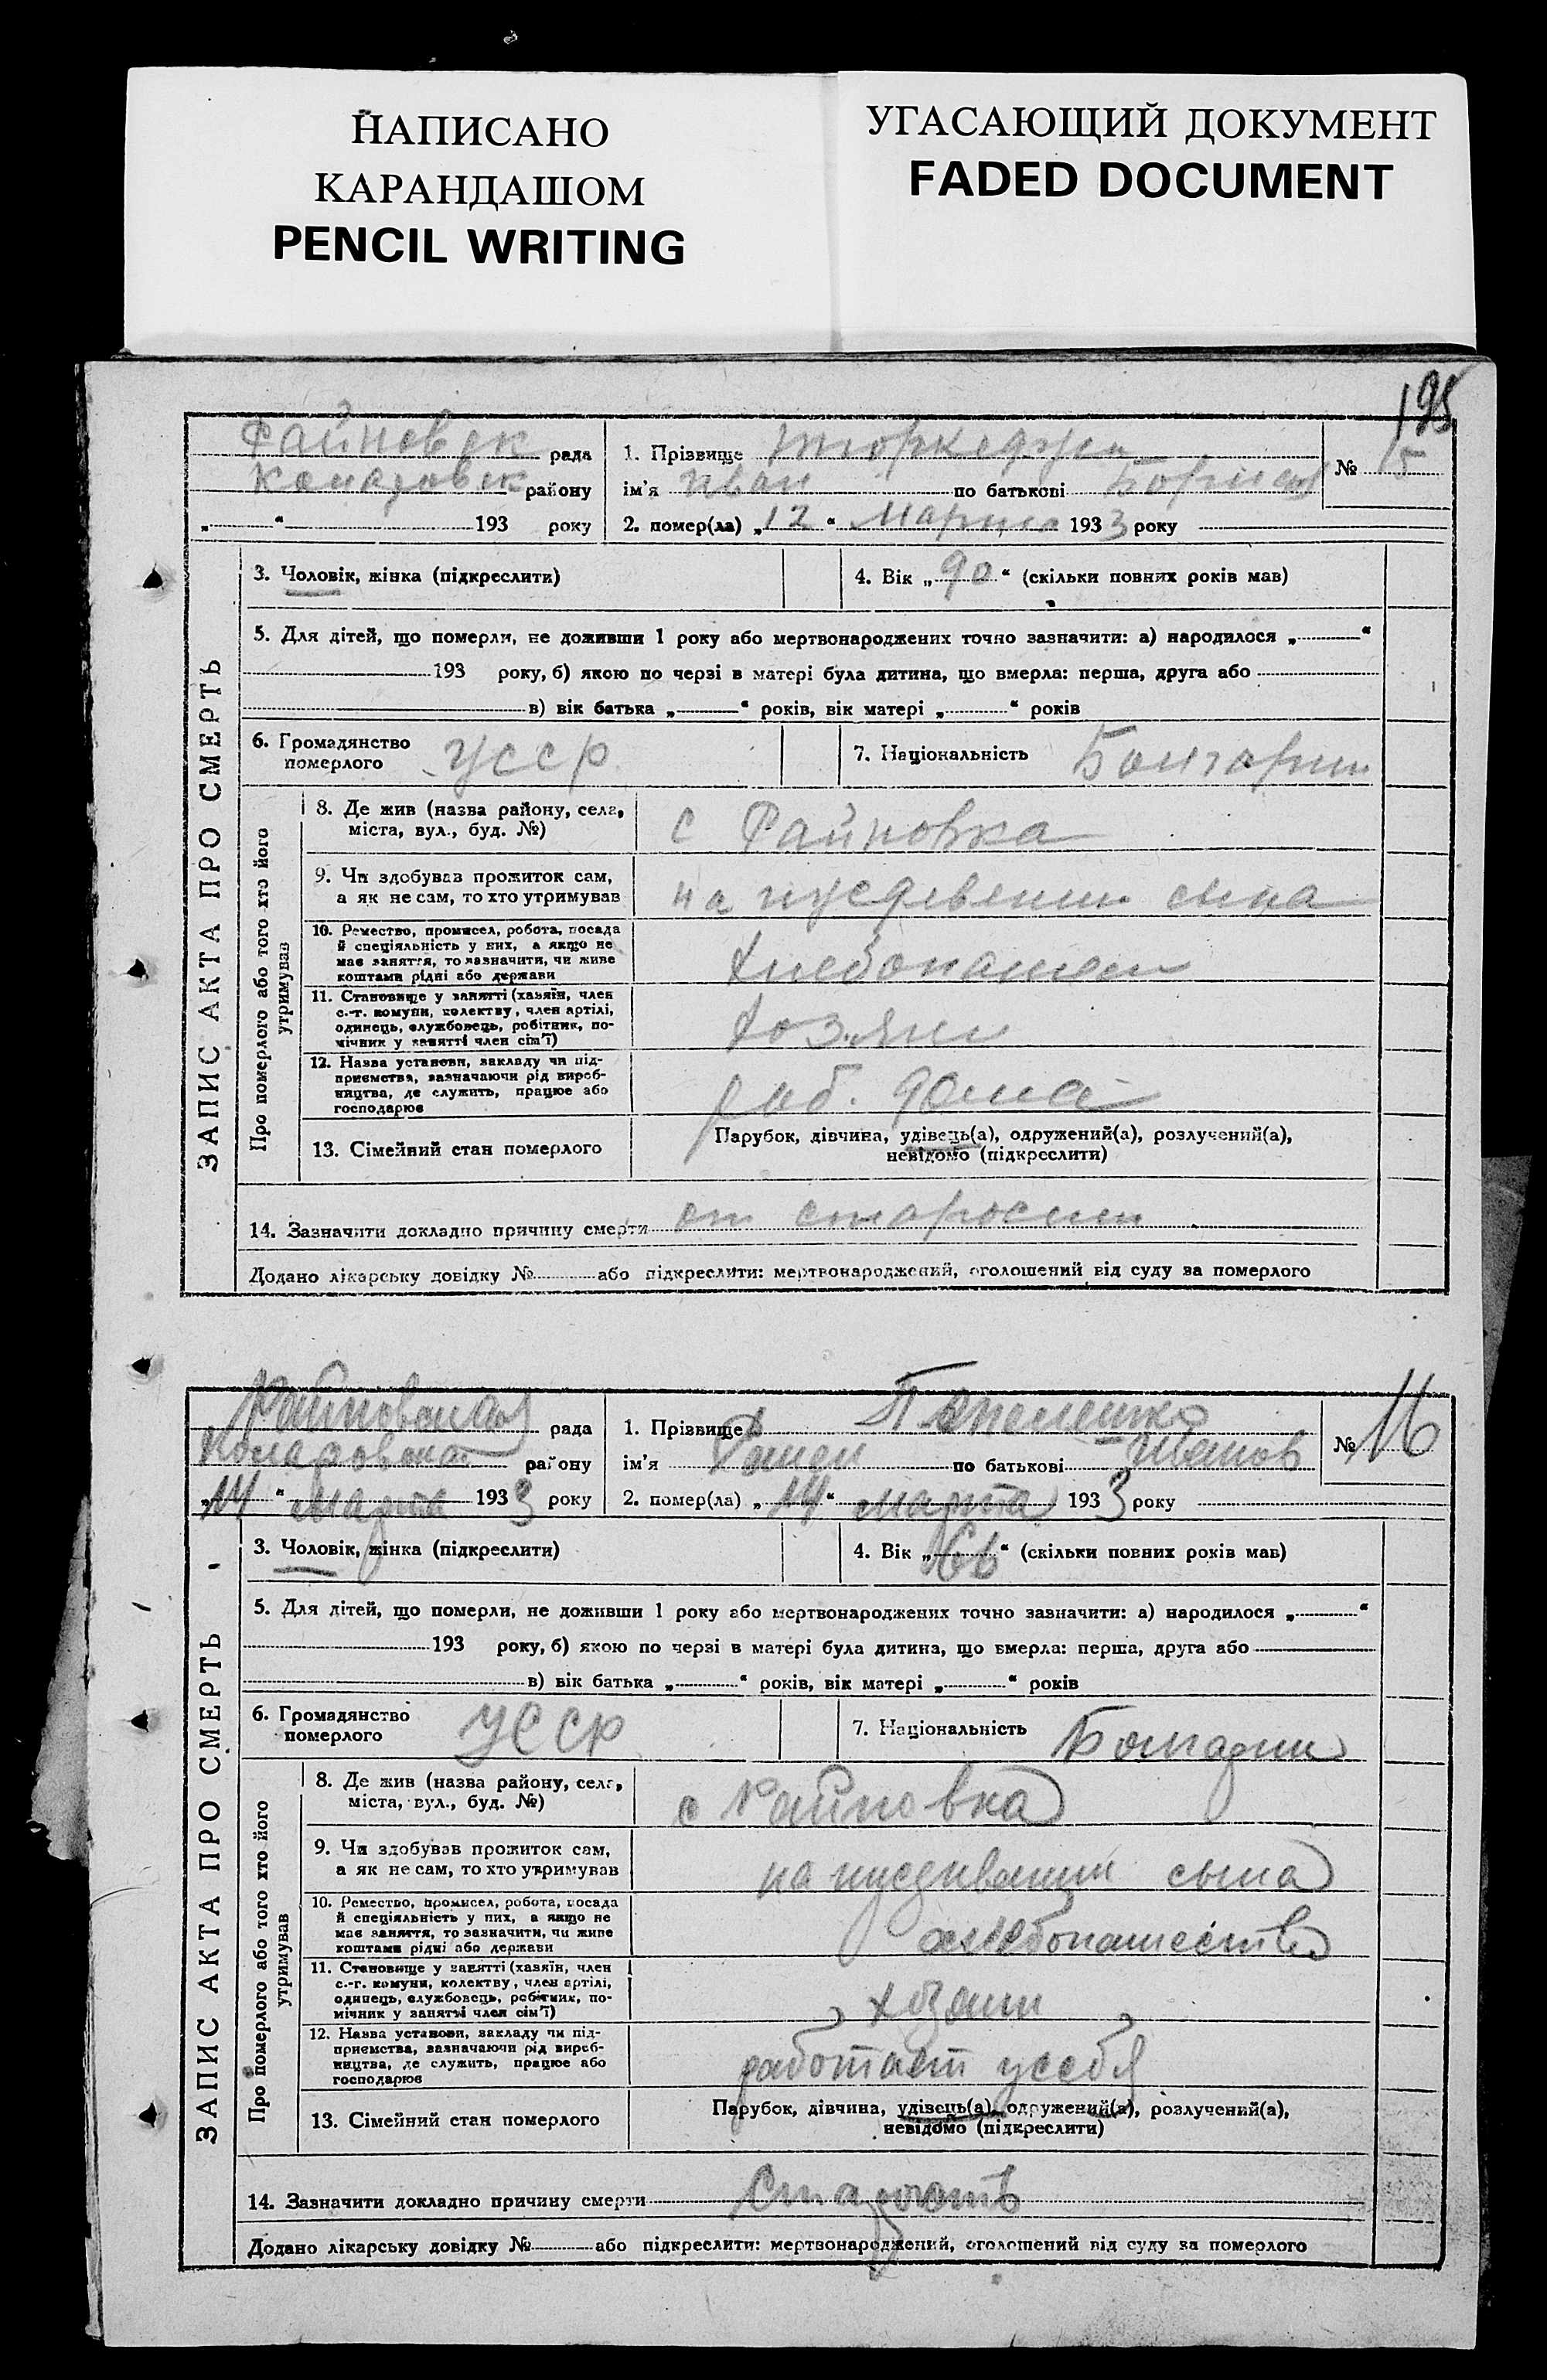 НАПИСАНО
КАРАНДАШОМ
PENCIL WRITING
УГАСАЮЩИЙ ДОКУМЕНТ
FADED DOCUMENT
195
Райновск рада
району
„ “ 193 року
1. Прізвище
ім'я Иван по батькові
№ 15
2. помер(ла) „12“ Марта 1933 року
ЗАПИС АКТА ПРО СМЕРТЬ
3. Чоловік, жінка (підкреслити)
4. Вік „90“ (скільки повних років мав)
5. Для дітей, що померли, не доживши 1 року або мертвонароджених точно зазначити: а) народилося „ “
193 року, б) якою по черзі в матері була дитина, що вмерла: перша, друга або
в) вік батька „ “ років, вік матері „ “ років
6. Громадянство
померлого
УССР
7. Національність
Болгарин
Про померлого або того хто його
утримував
8. Де жив (назва району, села,
міста, вул., буд. №)
с Райновка
9. Чи здобував прожиток сам,
а як не сам, то хто утримував
на иждевении сына
10. Ремество, промисел, робота, посада
й спеціяльність у них, а якщо не
має заняття, то зазначити, чи живе
коштами рідні або держави
11. Становище у занятті (хазяїн, член
с.-г. комуни, колективу, член артілі,
одинець, службовець, робітник, по-
мічник у занятті член сім'ї)
Хозяин
12. Назва установи, закладу чи під-
приємства, зазначаючи рід вироб-
ництва, де служить, працює або
господарює
раб. дома
13. Сімейний стан померлого
Парубок, дівчина, удівець(а), одружений(а), розлучений(а),
невідомо (підкреслити)
14. Зазначити докладно причину смерти от старости
Додано лікарську довідку № або підкреслити: мертвонароджений, оголошений від суду за померлого
Райновская рада
району
„14“ марта 1933 року
1. Прізвище
ім'я по батькові Иванов
№ 16
2. помер(ла) „14“ марта 1933 року
ЗАПИС АКТА ПРО СМЕРТЬ
3. Чоловік, жінка (підкреслити)
4. Вік „66“ (скільки повних років мав)
5. Для дітей, що померли, не доживши 1 року або мертвонароджених точно зазначити: а) народилося „ “
193 року, б) якою по черзі в матері була дитина, що вмерла: перша, друга або
в) вік батька „ “ років, вік матері „ “ років
6. Громадянство
померлого
УССР
7. Національність
Про померлого або того хто його
утримував
8. Де жив (назва району, села,
міста, вул., буд. №)
с Райновка
9. Чи здобував прожиток сам,
а як не сам, то хто утримував
на сына
10. Ремество, промисел, робота, посада
й спеціяльність у них, а якщо не
має заняття, то зазначити, чи живе
коштами рідні або держави
11. Становище у занятті (хазяїн, член
с.-г. комуни, колективу, член артілі,
одинець, службовець, робітник, по-
мічник у занятті член сім'ї)
12. Назва установи, закладу чи під-
приємства, зазначаючи рід вироб-
ництва, де служить, працює або
господарює
работает усебя
13. Сімейний стан померлого
Парубок, дівчина, удівець(а), одружений(а), розлучений(а),
невідомо (підкреслити)
14. Зазначити докладно причину смерти Старость
Додано лікарську довідку № або підкреслити: мертвонароджений, оголошений від суду за померлого